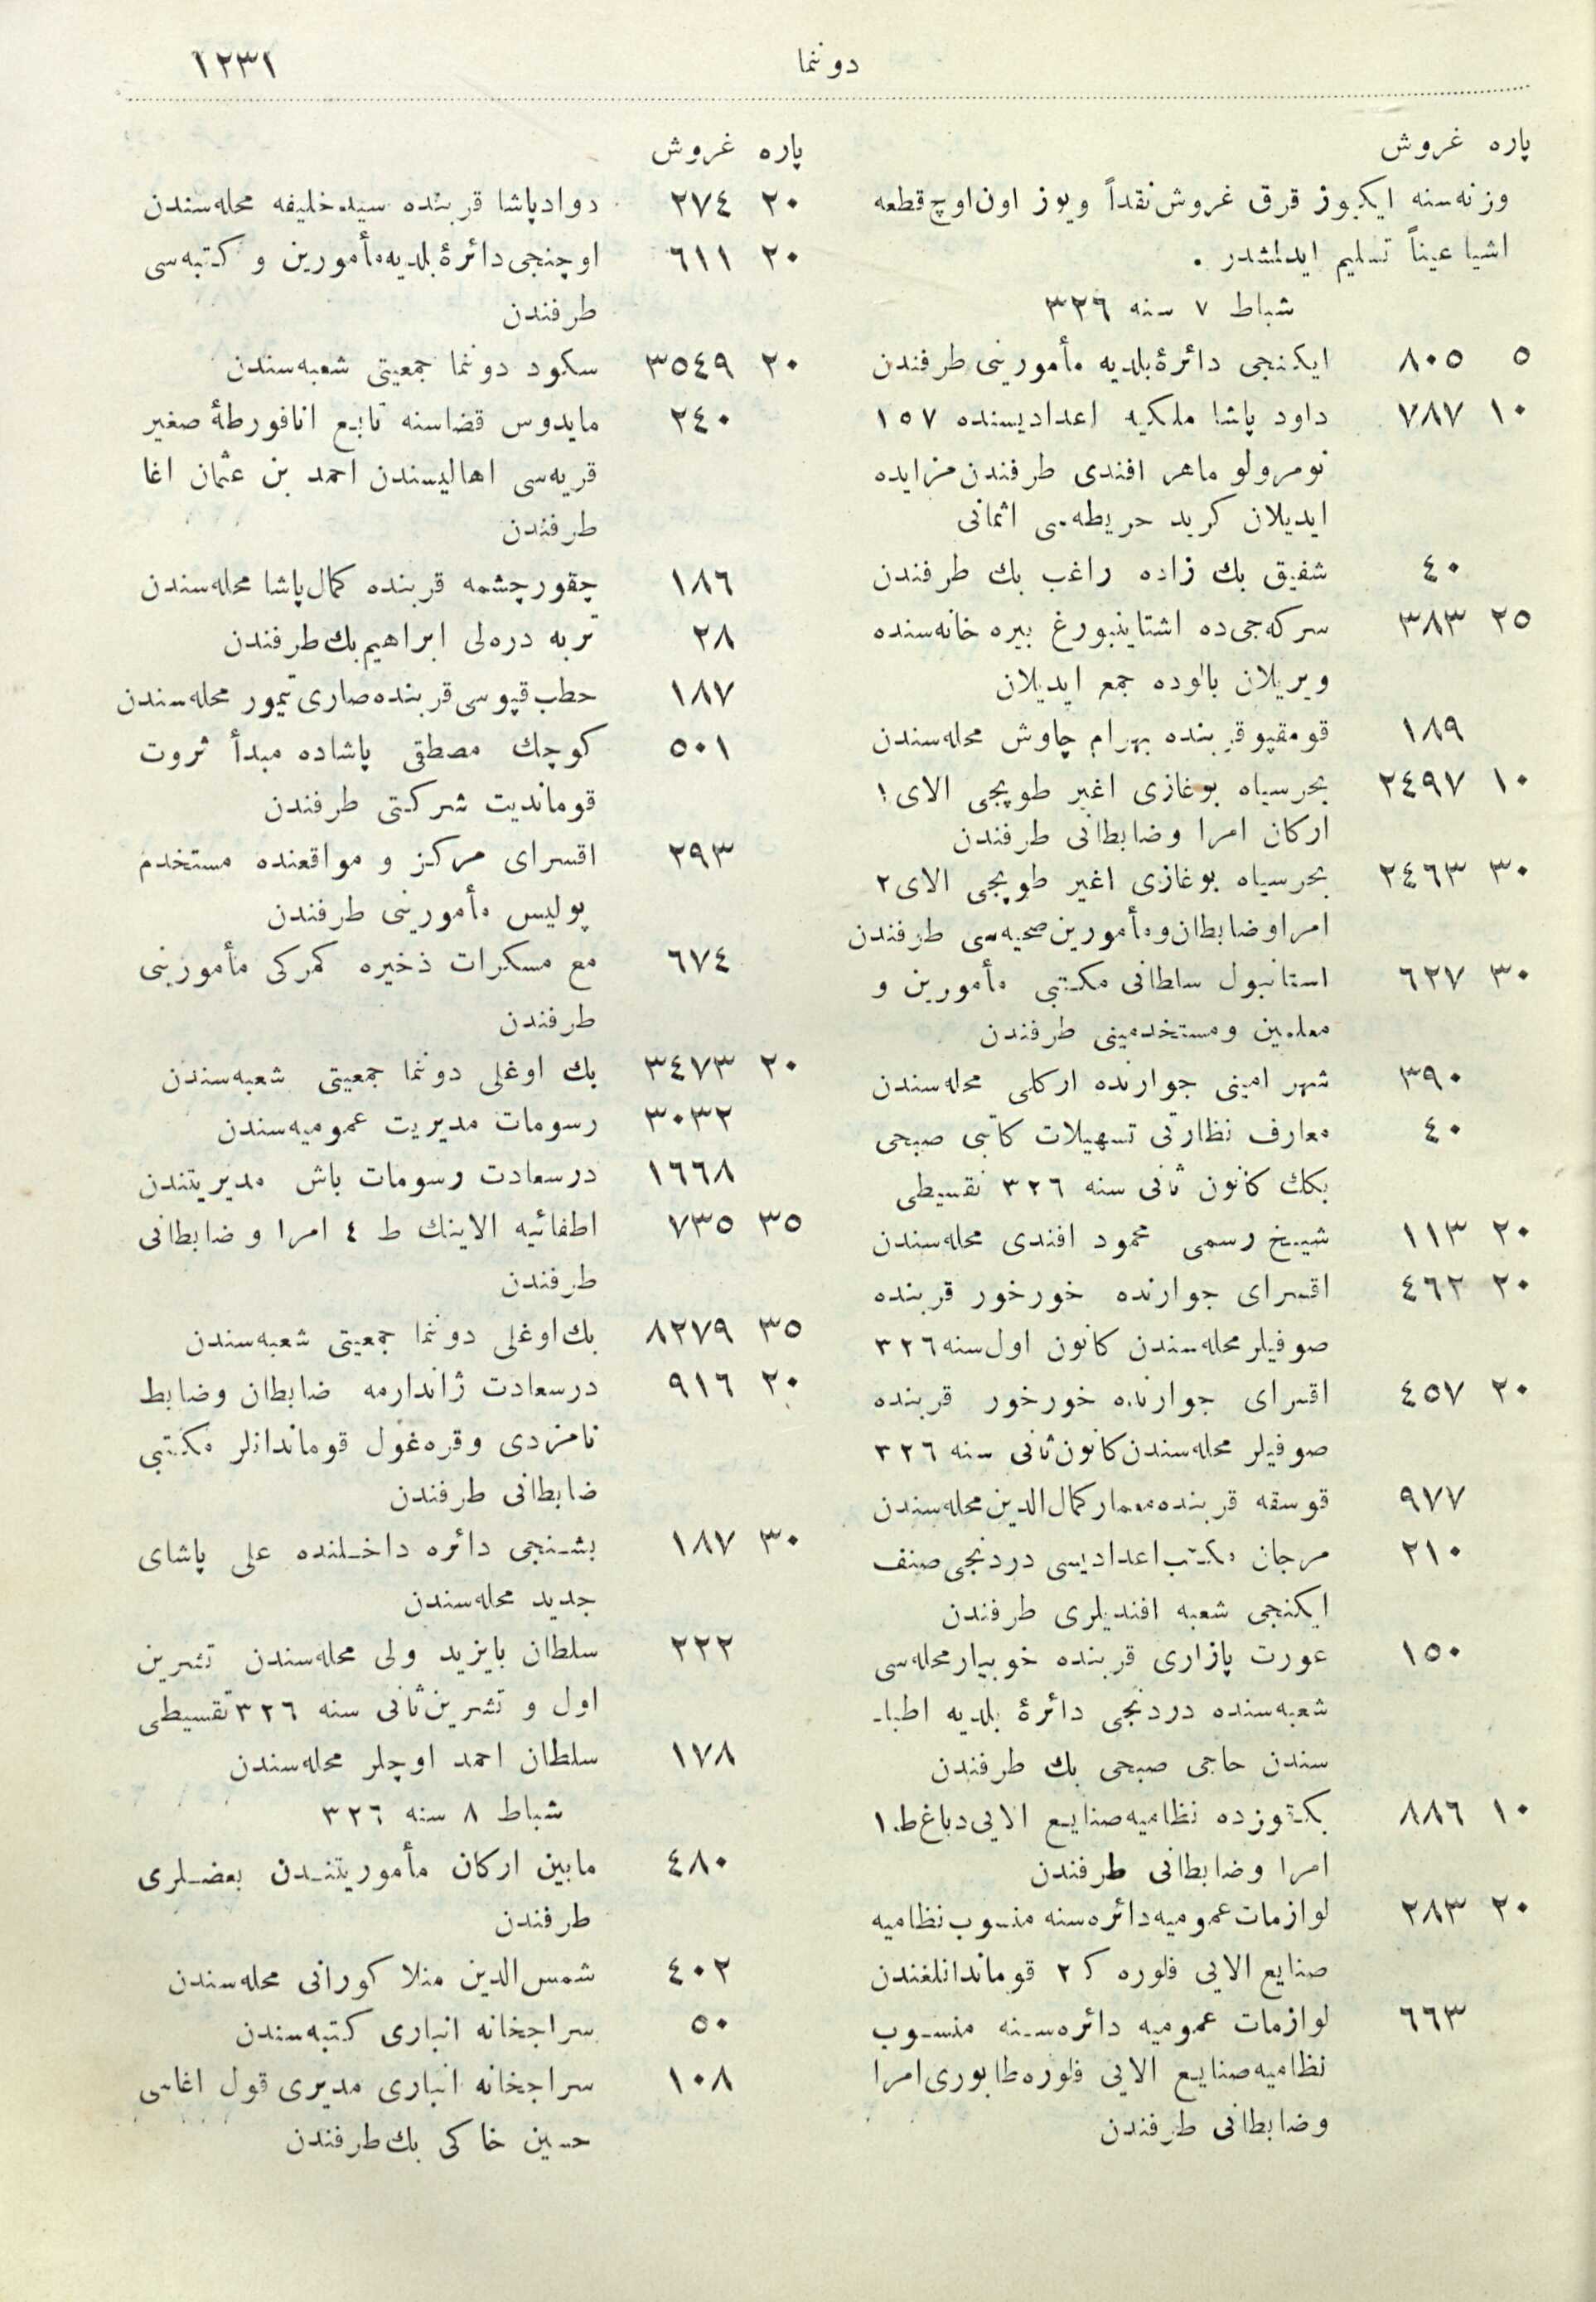 دوننما ١٢٣١
پاره غروش
وزنه‌سنه ایکیوز قرق غروش نقداً ویوز اون اوچ قطعه
اشیا عیناً تسلیم ایدلشدر .
شباط ٧ سنه ٣٢٦
٥ ٨٠٥ ایکنجی دائرهٔ بلدیه مأمورینی طرفندن
١٠ ٧٨٧ داود پاشا ملکیه اعدادیسنده ١٥٧
نومرولو ماهر افندی طرفندن مزایده
ایدیلان کرید خریطه‌سی اثمانی
٤٠ شفیق بك زاده راغب بك طرفندن
٢٥ ٣٨٣ سرکه‌جی‌ده اشتاینبورغ بیره خانه‌سنده
ویریلان بالوده جمع ایدیلان
١٨٩ قومقپو قربنده بهرام چاوش محله‌سندن
١٠ ٢٤٩٧ بحرسیاه بوغازی اغیر طوپجی الای ١
ارکان امرا وضابطانی طرفندن
٣٠ ٢٤٦٣ بحرسیاه بوغازی اغیر طوپجی الای ٢
امرا وضابطان ومأمورین صحیه‌سی طرفندن
٣٠ ٦٢٧ استانبول سلطانی مکتبی مأمورین و
معلمین ومستخدمینی طرفندن
٣٩٠ شهر امینی جوارنده ارکلی محله‌سندن
٤٠ معارف نظارتی تسهیلات کاتبی صبحی
بکك کانون ثانی سنه ٣٢٦ تقسیطی
٢٠ ١١٣ شیخ رسمی محمود افندی محله‌سندن
٢٠ ٤٦٢ اقسرای جوارنده خورخور قربنده
صوفیلر محله‌سندن کانون اول سنه ٣٢٦
٢٠ ٤٥٧ اقسرای جوارنده خورخور قربنده
صوفیلر محله‌سندن کانون ثانی سنه ٣٢٦
٩٧٧ قوسقه قربنده معمار کمال الدین محله‌سندن
٢١٠ مرجان مکتب اعدادیسی دردنجی صنف
ایکنجی شعبه افندیلری طرفندن
١٥٠ عورت پازاری قربنده خوبیار محله‌سی
شعبه‌سنده دردنجی دائرهٔ بلدیه اطبا-
سندن حاجی صبحی بك طرفندن
١٠ ٨٨٦ بکتوزده نظامیه صنایع الایی دباغ ط. ١
امرا وضابطانی طرفندن
٢٠ ٢٨٣ لوازمات عمومیه دائره‌سنه منسوب نظامیه
صنایع الایی فلوره ك ٢ قوماندانلغندن
٦٦٣ لوازمات عمومیه دائره‌سنه منسوب
نظامیه صنایع الایی فلوره طابوری امرا
وضابطانی طرفندن
پاره غروش
٢٠ ٢٧٤ دوادپاشا قربنده سید خلیفه محله‌سندن
٢٠ ٦١١ اوچنجی دائرهٔ بلدیه مأمورین و کتبه‌سی
طرفندن
٢٠ ٣٥٤٩ سکود دوننما جمعیتی شعبه‌سندن
٢٤٠ مایدوس قضاسنه تابع انافورطهٔ صغیر
قریه‌سی اهالیسندن احمد بن عثمان اغا
طرفندن
١٨٦ چقورچشمه قربنده کمال پاشا محله‌سندن
٢٨ تربه دره‌لی ابراهیم بك طرفندن
١٨٧ حطب قپوسی قربنده صاری تیمور محله‌سندن
٥٠١ کوچك مصطفی پاشاده مبدأ ثروت
قوماندیت شرکتی طرفندن
٢٩٣ اقسرای مرکز و مواقعنده مستخدم
پولیس مأمورینی طرفندن
٦٧٤ مع مسکرات ذخیره کمرکی مأمورینی
طرفندن
٢٠ ٣٤٧٣ بك اوغلی دوننما جمعیتی شعبه‌سندن
٣٠٣٢ رسومات مدیریت عمومیه‌سندن
١٦٦٨ درسعادت رسومات باش مدیریتندن
٣٥ ٧٣٥ اطفائیه الاینك ط ٤ امرا و ضابطانی
طرفندن
٣٥ ٨٢٧٩ بك اوغلی دوننما جمعیتی شعبه‌سندن
٢٠ ٩١٦ درسعادت ژاندارمه ضابطان وضابط
نامزدی وقره‌غول قوماندانلر مکتبی
ضابطانی طرفندن
٣٠ ١٨٧ بشنجی دائره داخلنده علی پاشای
جدید محله‌سندن
٢٢٢ سلطان بایزید ولی محله‌سندن تشرین
اول و تشرین ثانی سنه ٣٢٦ تقسیطی
١٧٨ سلطان احمد اوچلر محله‌سندن
شباط ٨ سنه ٣٢٦
٤٨٠ مابین ارکان مأموریتندن بعضلری
طرفندن
٤٠٢ شمس الدین منلا کورانی محله‌سندن
٥٠ سراجخانه انباری کتبه‌سندن
١٠٨ سراجخانه انباری مدیری قول اغاسی
حسین خاکی بك طرفندن